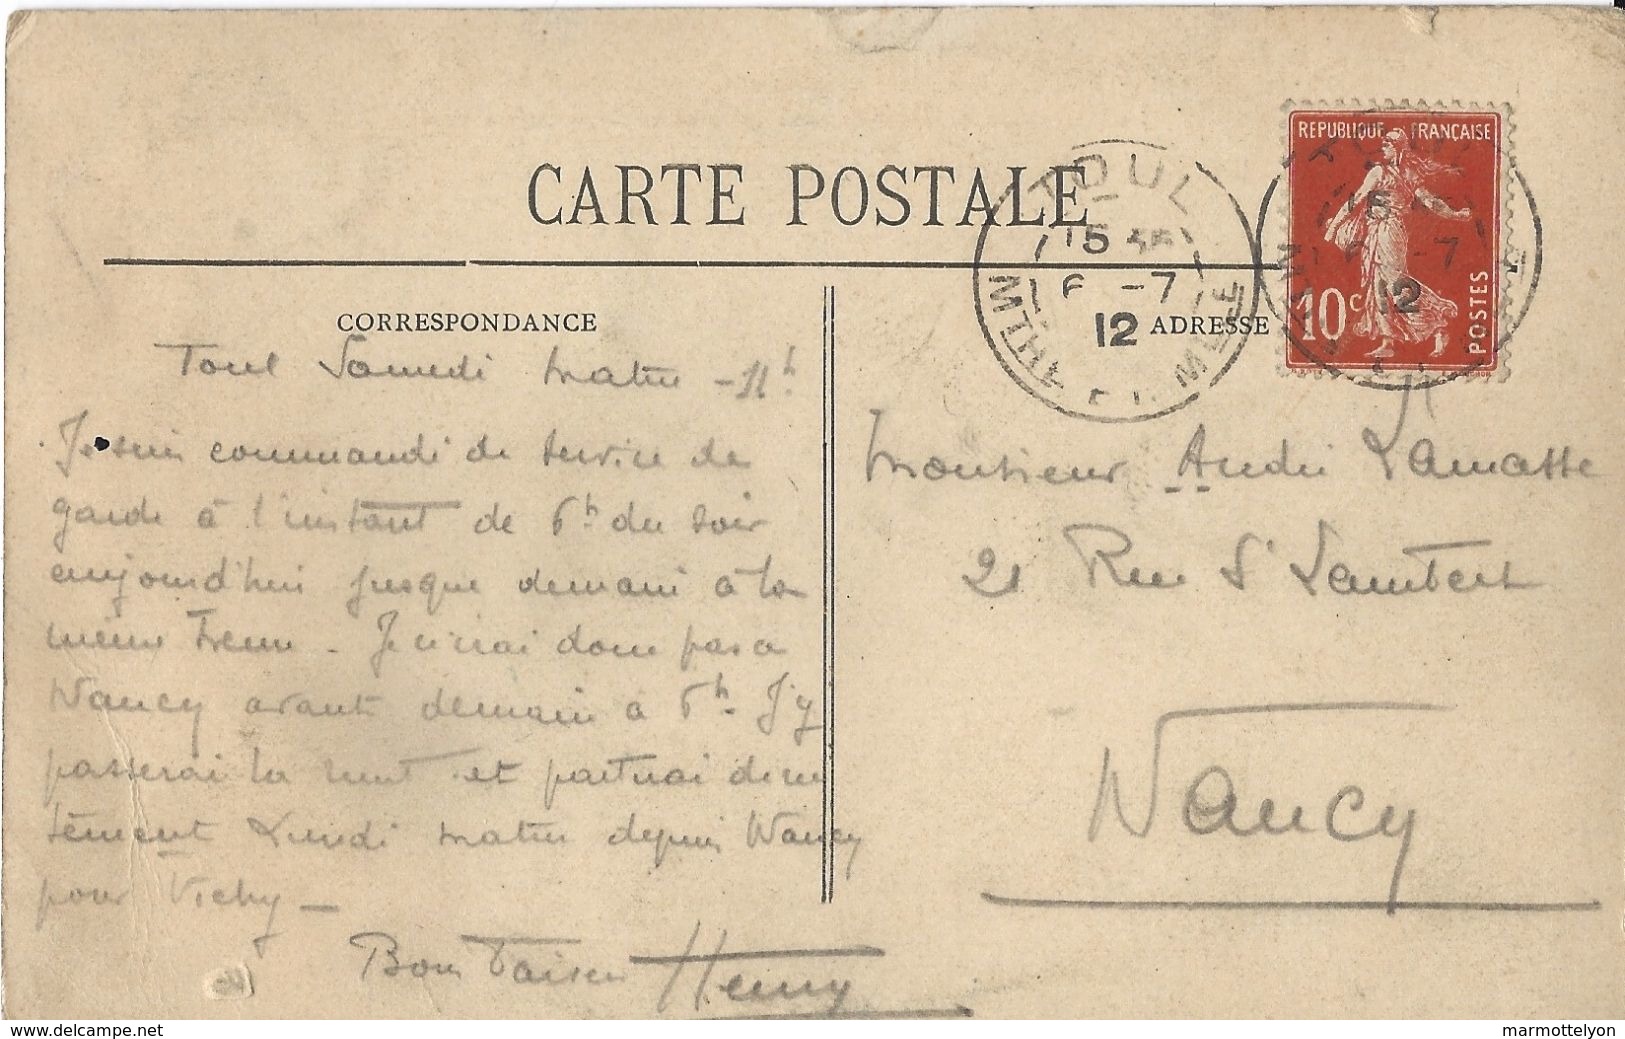 CARTE POSTALE
CORRESPONDANCE
Toul Samedi matin - 11h
Je suis commandé de service de
garde à l'instant de 6h du soir
aujourd'hui jusque demain à la
même heure - Je n'irai donc pas à
Nancy avant demain à 6h. J'y
passerai la nuit et partirai direc
tement Lundi matin depuis Nancy
pour Vichy -
Bon Baiser Henry
TOUL
15
6 -7
12
MTHE ET MLLE
REPUBLIQUE FRANÇAISE
10c
POSTES
15
-7
12
ADRESSE
Monsieur André Lamasse
21 Rue St Lambert
Nancy
www.delcampe.net
marmottelyon